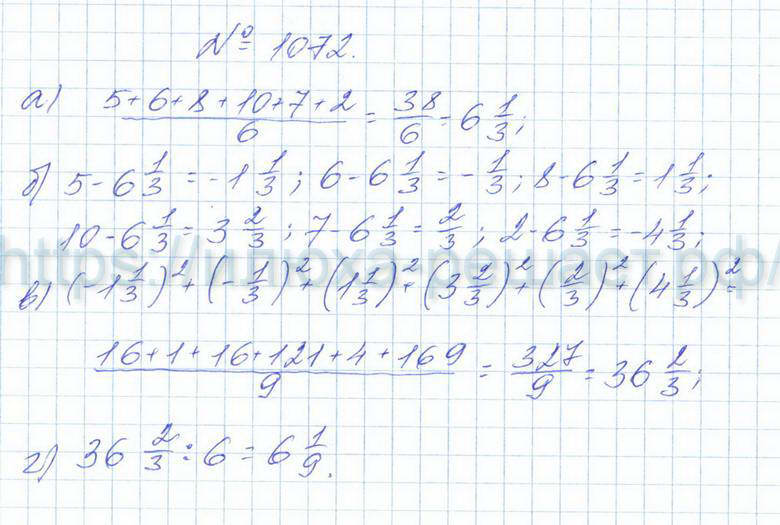 № 1072.
а) (5+6+8+10+7+2)/6 = 38/6 = 6 1/3;
б) 5 - 6 1/3 = -1 1/3; 6 - 6 1/3 = - 1/3; 8 - 6 1/3 = 1 1/3;
10 - 6 1/3 = 3 2/3; 7 - 6 1/3 = 2/3; 2 - 6 1/3 = -4 1/3;
https://илюха-решает.рф/
в) (-1 1/3)² + (- 1/3)² + (1 1/3)² + (3 2/3)² + (2/3)² + (4 1/3)² =
(16+1+16+121+4+169)/9 = 327/9 = 36 2/3;
г) 36 2/3 : 6 = 6 1/9.